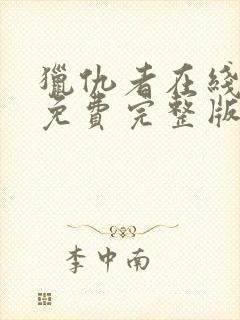 獵仇者在綫
免費完整版
李中南